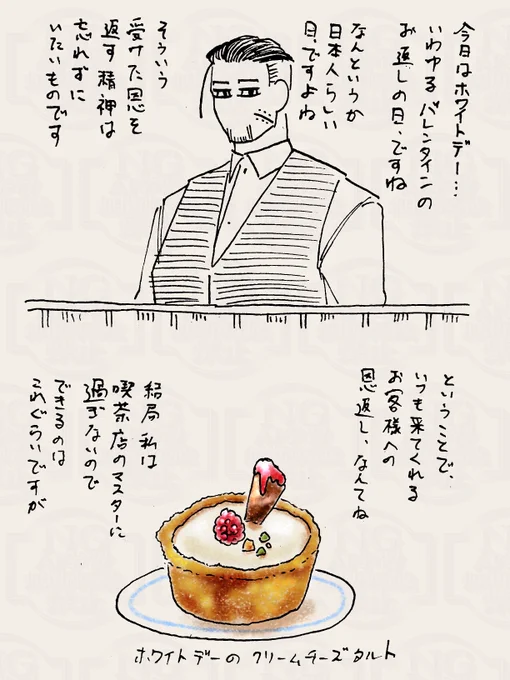 今日はホワイトデー…
いわゆるバレンタインの
お返しの日、ですね
なんというか
日本人らしい
日、ですよね
そういう
受けた恩を
返す精神は
忘れずに
いたいものです
ということで、
いつも来てくれる
お客様への
恩返し、なんてね
結局私は
喫茶店のマスターに
過ぎないので
できるのは
これぐらいですが
ホワイトデーの クリームチーズタルト